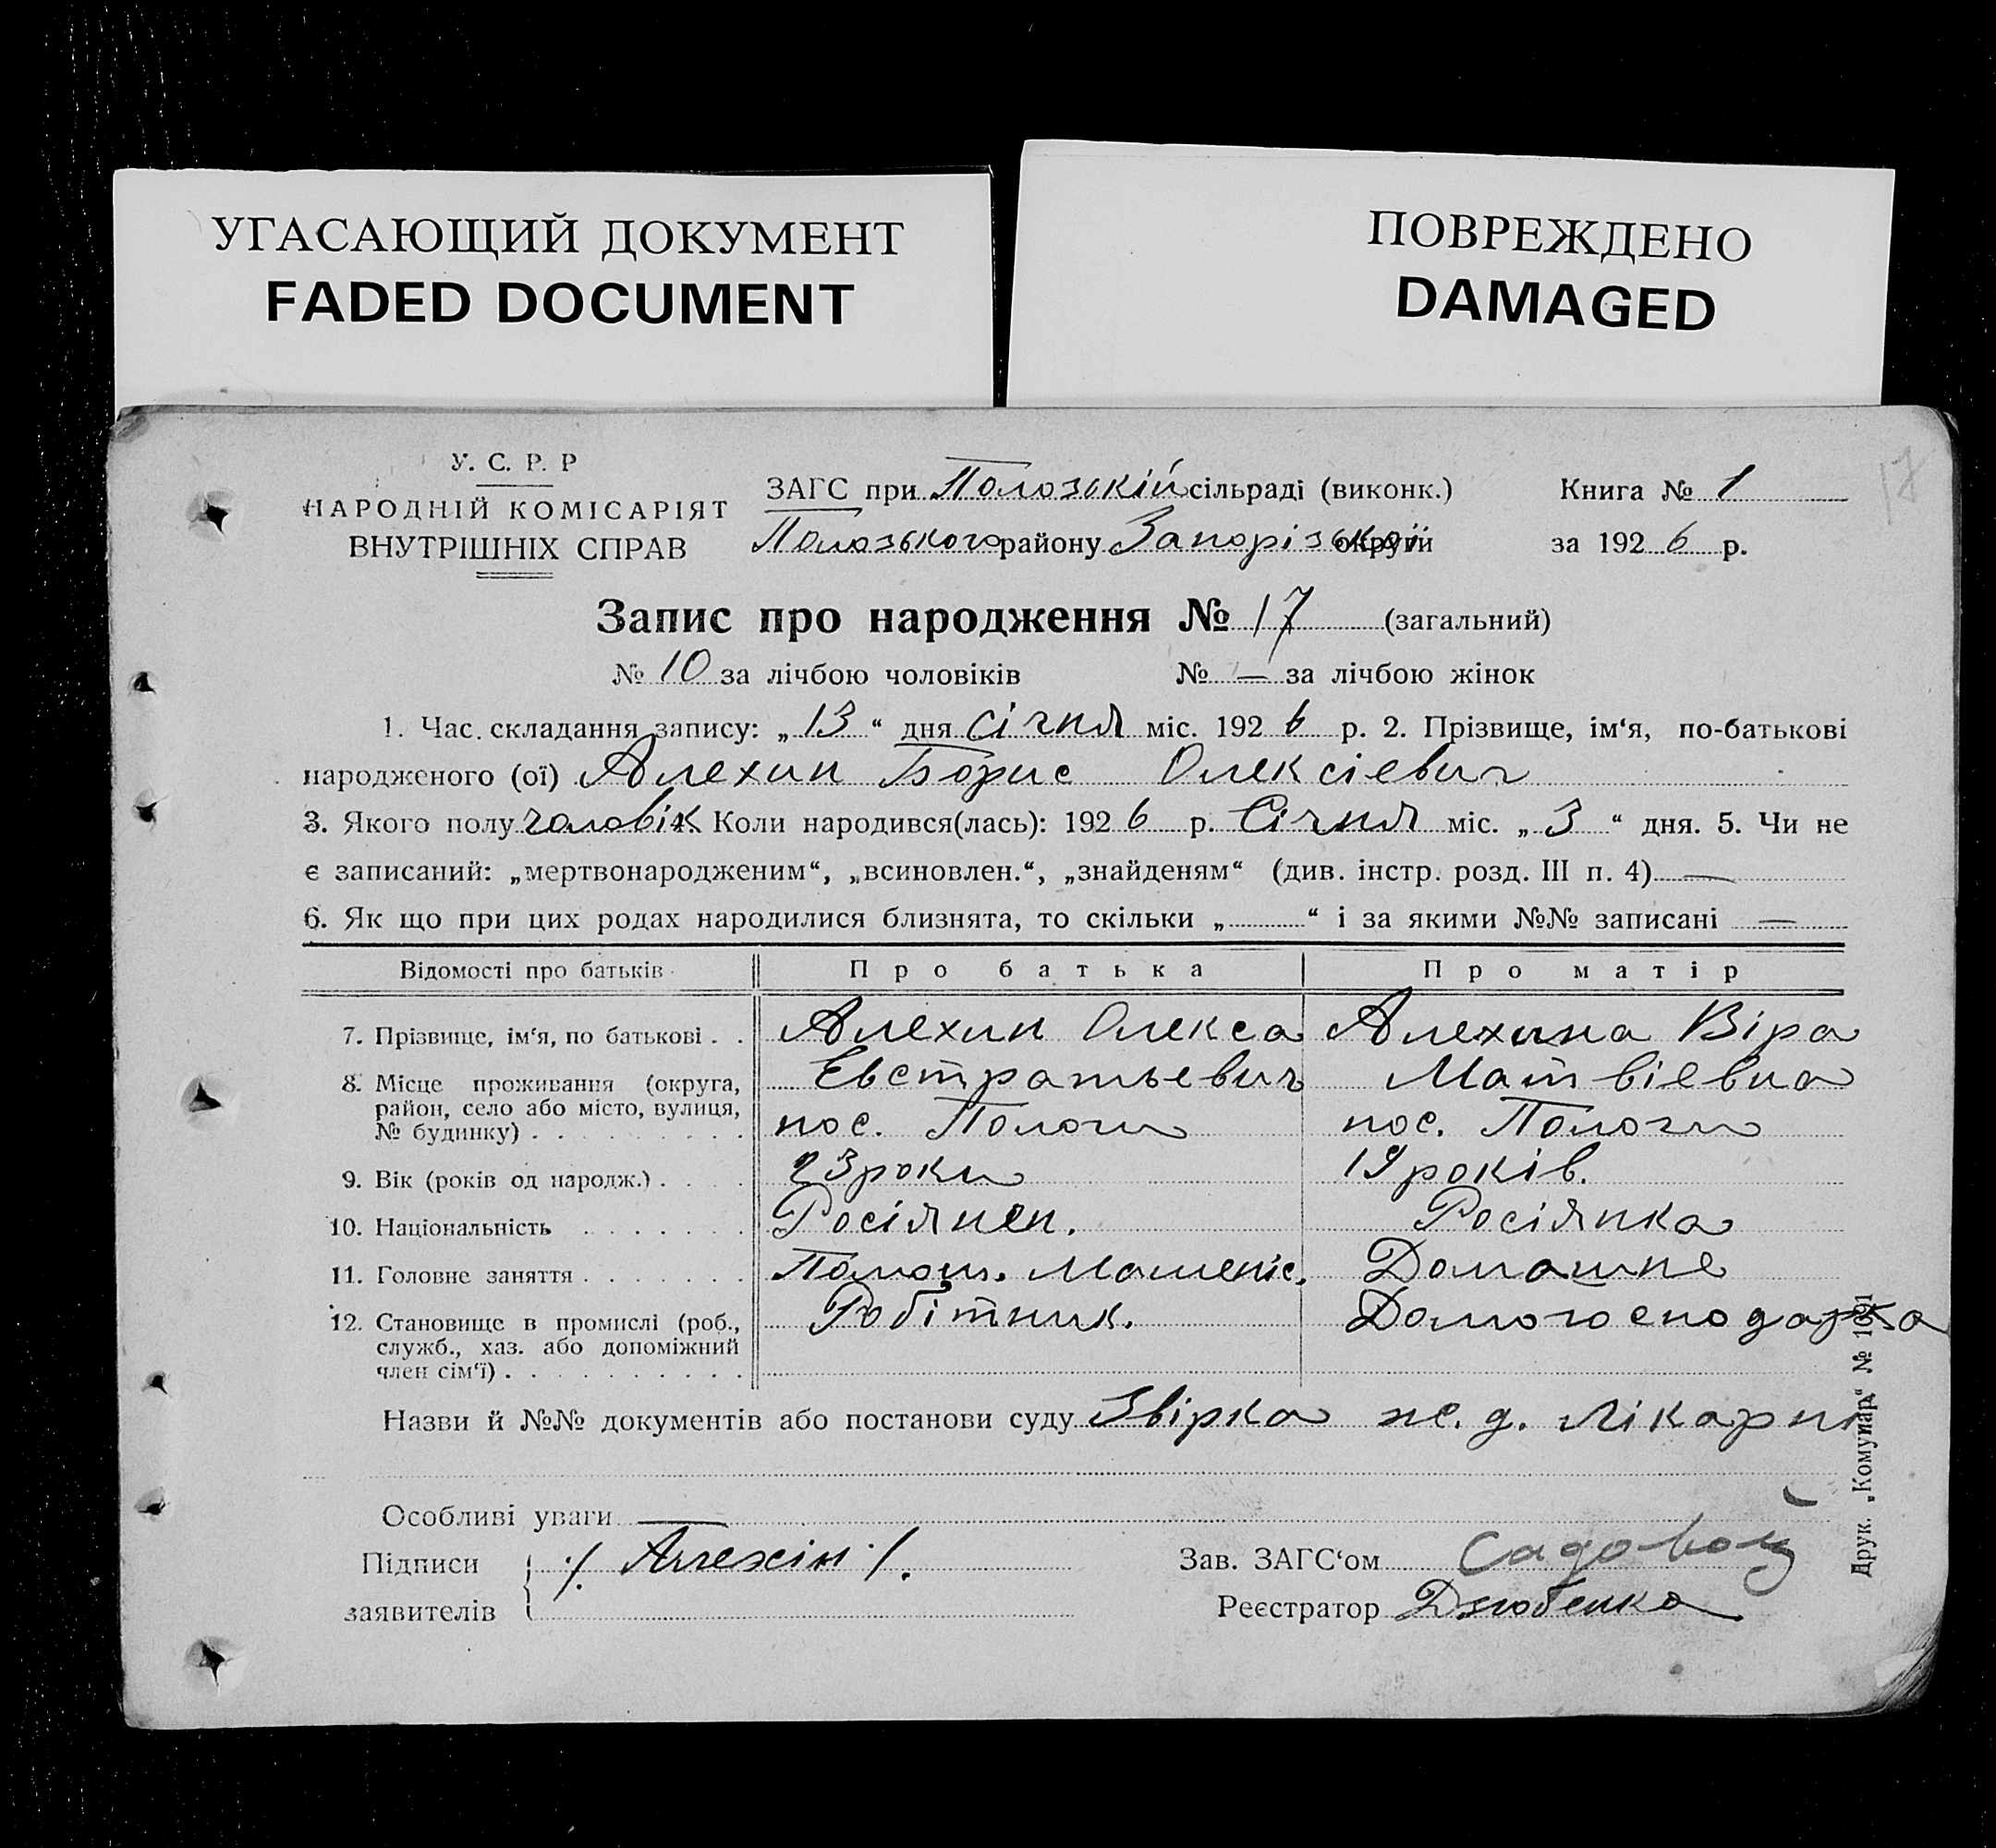 УГАСАЮЩИЙ ДОКУМЕНТ
FADED DOCUMENT
ПОВРЕЖДЕНО
DAMAGED
17
У. С. Р. Р
НАРОДНІЙ КОМІСАРІЯТ
ВНУТРІШНІХ СПРАВ
ЗАГС при Полозькій сільраді (виконк.)
Полозького району Запорізької округи
Книга № 1
за 1926 р.
Запис про народження № 17 (загальний)
№ 10 за лічбою чоловіків № — за лічбою жінок
1. Час складання запису: „13“ дня січня міс. 1926 р. 2. Прізвище, ім‘я, по-батькові
народженого (ої) Алехин Борис Олексієвич
3. Якого полу чоловік 4. Коли народився(лась): 1926 р. Січня міс. „3“ дня. 5. Чи не
є записаний: „мертвонародженим“, „всиновлен.“, „знайденям“ (див. інстр. розд. III п. 4) —
6. Як що при цих родах народилися близнята, то скільки „ “ і за якими №№ записані —
Відомості про батьків Про батька Про матір
7. Прізвище, ім‘я, по батькові . . Алехин Олекса Алехина Віра
Евстратьевич Матвіевна
8. Місце проживання (округа,
район, село або місто, вулиця,
№ будинку) . . . . . . . . . пос. Пологи пос. Пологи
9. Вік (років од народж.) . . . . 23 роки 19 років.
10. Національність . . . . . . . Росіянен. Росіянка
11. Головне заняття . . . . . . . Помош. Машеніс. Домашнє
12. Становище в промислі (роб.,
служб., хаз. або допоміжний
член сім‘ї) . . . . . . . . . . Робітник. Домогосподарка
Назви й №№ документів або постанови суду Звірка ж. д. лікарні
Особливі уваги —
Підписи
заявителів ./. Алехін ./.
Зав. ЗАГС‘ом Садовой
Реєстратор Дзюбенко
Друк. „Комунар“ № 1691